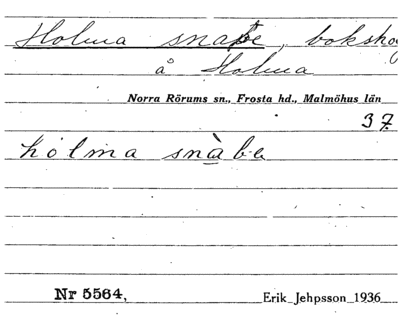 Holma snabe, bokskog
å Holma
Norra Rörums sn., Frosta hd., Malmöhus län
37.
hólma snàbe
Nr 5564,
Erik Jehpsson 1936